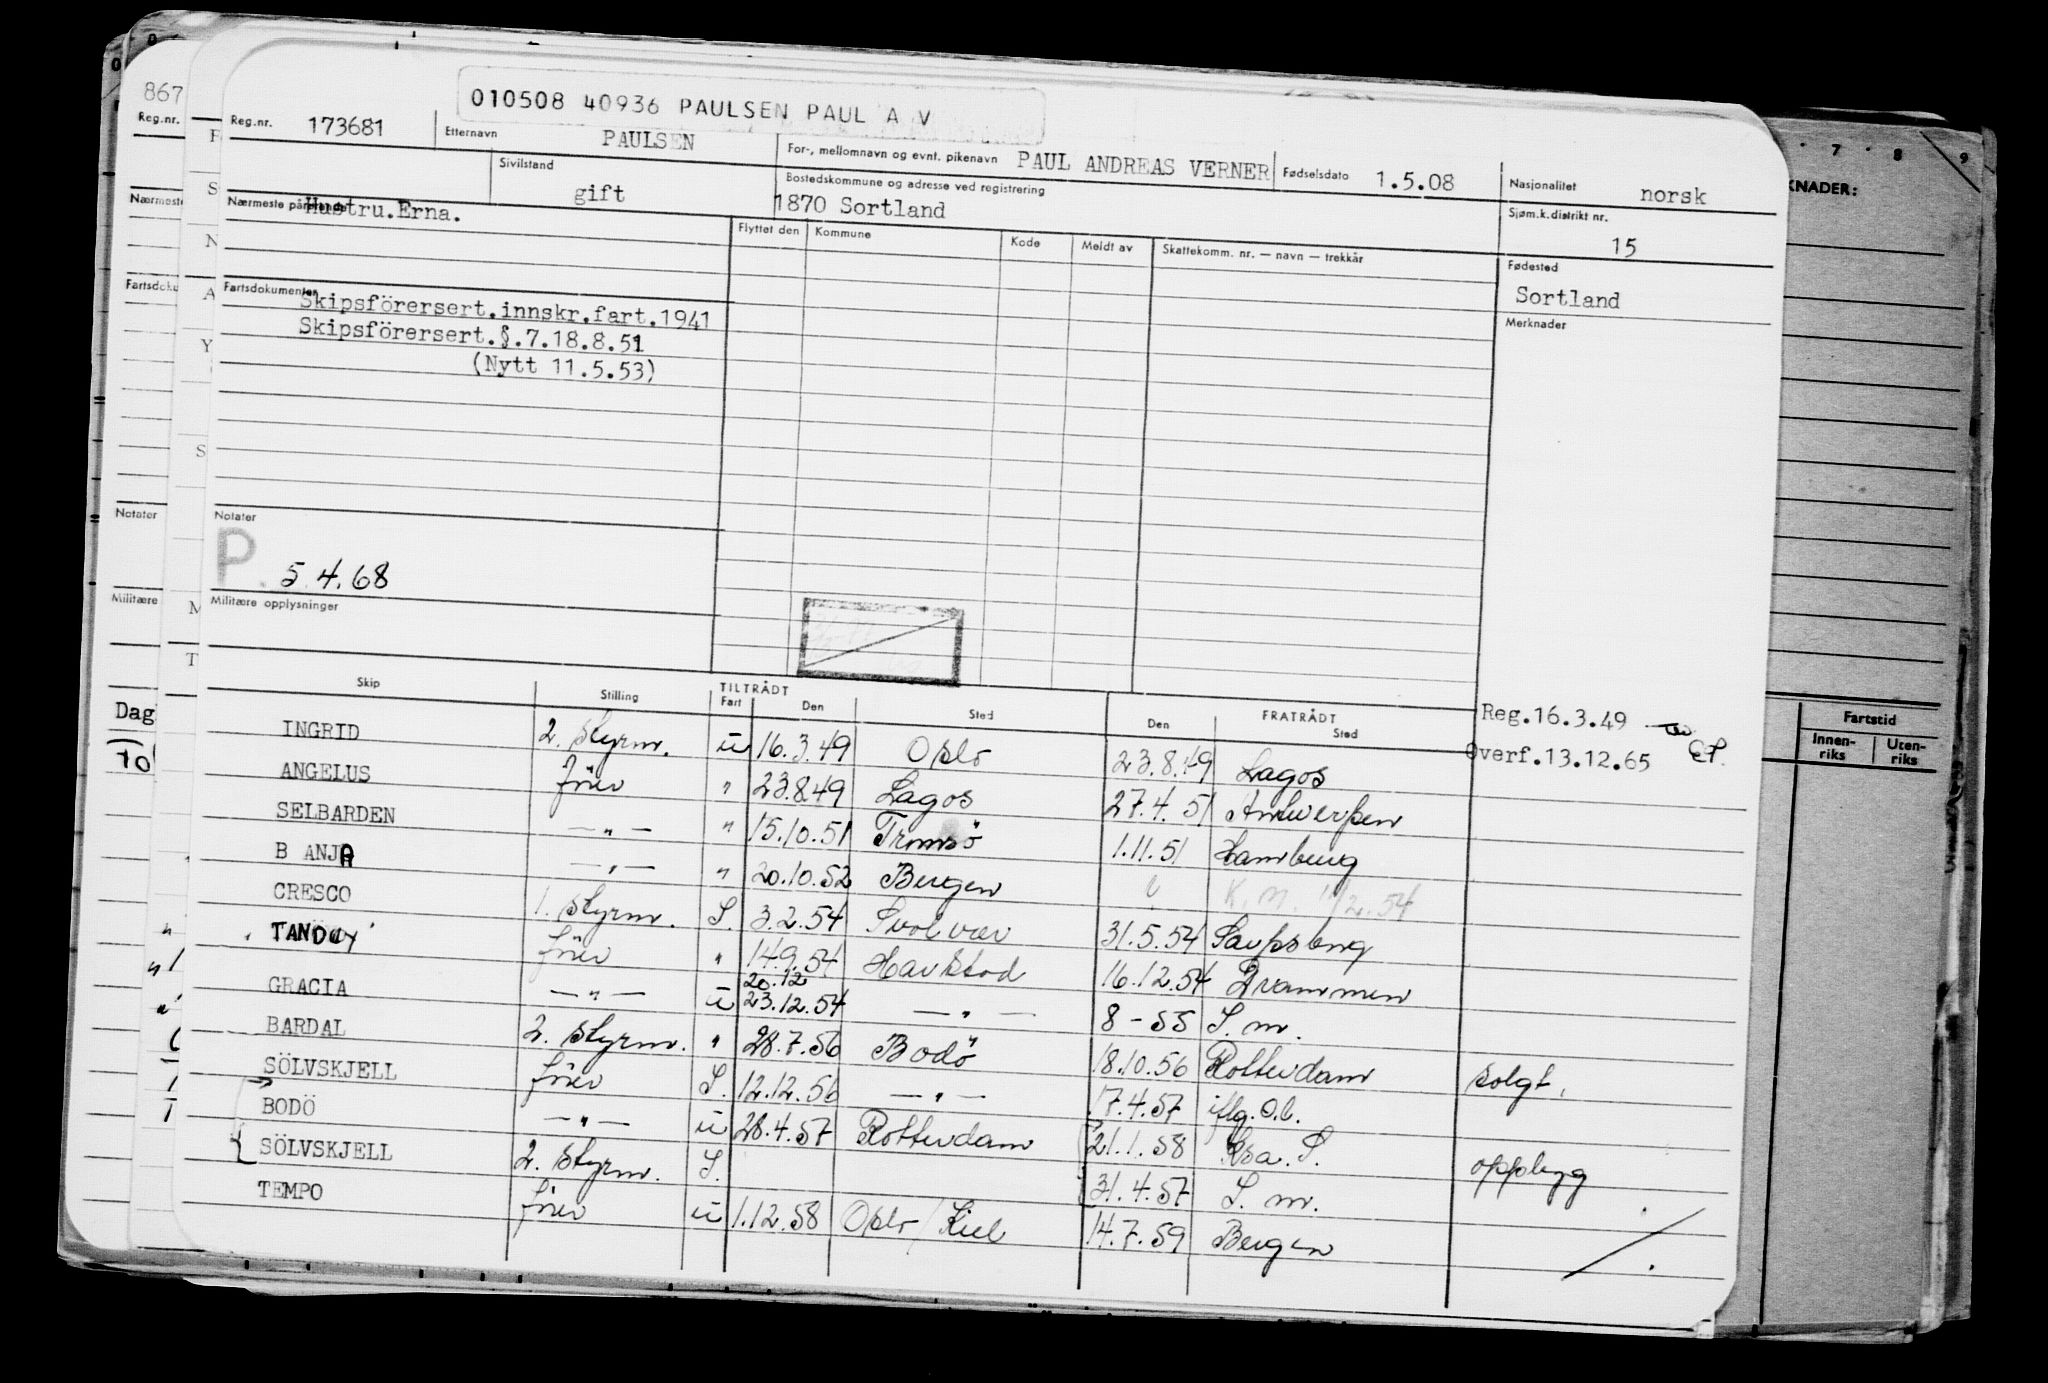 010508 40936 PAULSEN PAUL A V
867
Reg.nr. 173681 Etternavn PAULSEN For-, mellomnavn og evnt. pikenavn PAUL ANDREAS VERNER Fødselsdato 1.5.08 Nasjonalitet norsk
Reg.nr.
Sivilstand gift Bostedskommune og adresse ved registrering 1870 Sortland Sjøm.k.distrikt nr. 15
Nærmeste pårørende Hustru.Erna.
Flyttet den Kommune Kode Meldt av Skattekomm. nr. — navn — trekkår
Fødested
Sortland
Fartsdokumenter
Skipsförersert.innskr.fart.1941
Skipsförersert.§.7.18.8.51
(Nytt 11.5.53)
Merknader
KNADER:
7 8 9
Notater
Notater
P. 5.4.68
Militære
Militære opplysninger
Skip Stilling TILTRÅDT Fart Den Sted FRATRÅDT Den Sted
Reg.16.3.49
Overf.13.12.65
INGRID 2. styrm. u 16.3.49 Oslo 23.8.49 Lagos
ANGELUS fører " 23.8.49 Lagos 27.4.51 Antwerpen
SELBARDEN — " — " 15.10.51 Tromsö 1.11.51 Hamburg
B ANJA — " — " 20.10.52 Bergen
CRESCO 1. styrm. S. 3.2.54 Svolvær 31.5.54 Sarpsborg
fører " 14.9.54 Harstad 16.12.54 Drammen
GRACIA — " — u 20.12 23.12.54 — " — 8-55 S. m.
BARDAL 2. styrm. " 28.7.56 Bodö 18.10.56 Rotterdam solgt.
SÖLVSKJELL fører S. 12.12.56 — " — 17.4.57 iflg. O.b.
BODÖ — " — u 28.4.57 Rotterdam 21.1.58 Kra. S. opphugg
SÖLVSKJELL 2. styrm. S. 31.4.57 S. m.
TEMPO fører u 1.12.58 Oslo / Kiel 14.7.59 Bergen
Dag
Fartstid
Innen-riks Uten-riks